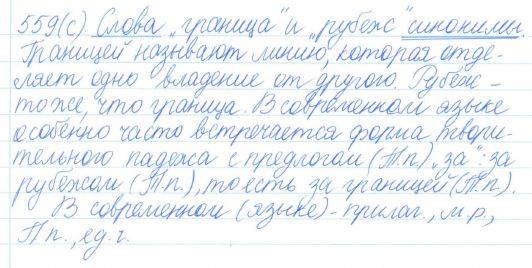 559(с) Слова „граница" и „рубеж" синонимы.
Границей называют линию, которая отде-
ляет одно владение от другого. Рубеж -
то же, что граница. В современном языке
особенно часто встречается форма твори-
тельного падежа с предлогом (Т.п.) „за": за
рубежом (Т.п.), то есть за границей (Т.п.).
В современном (языке) - прилаг., м.р.,
П.п., ед.ч.